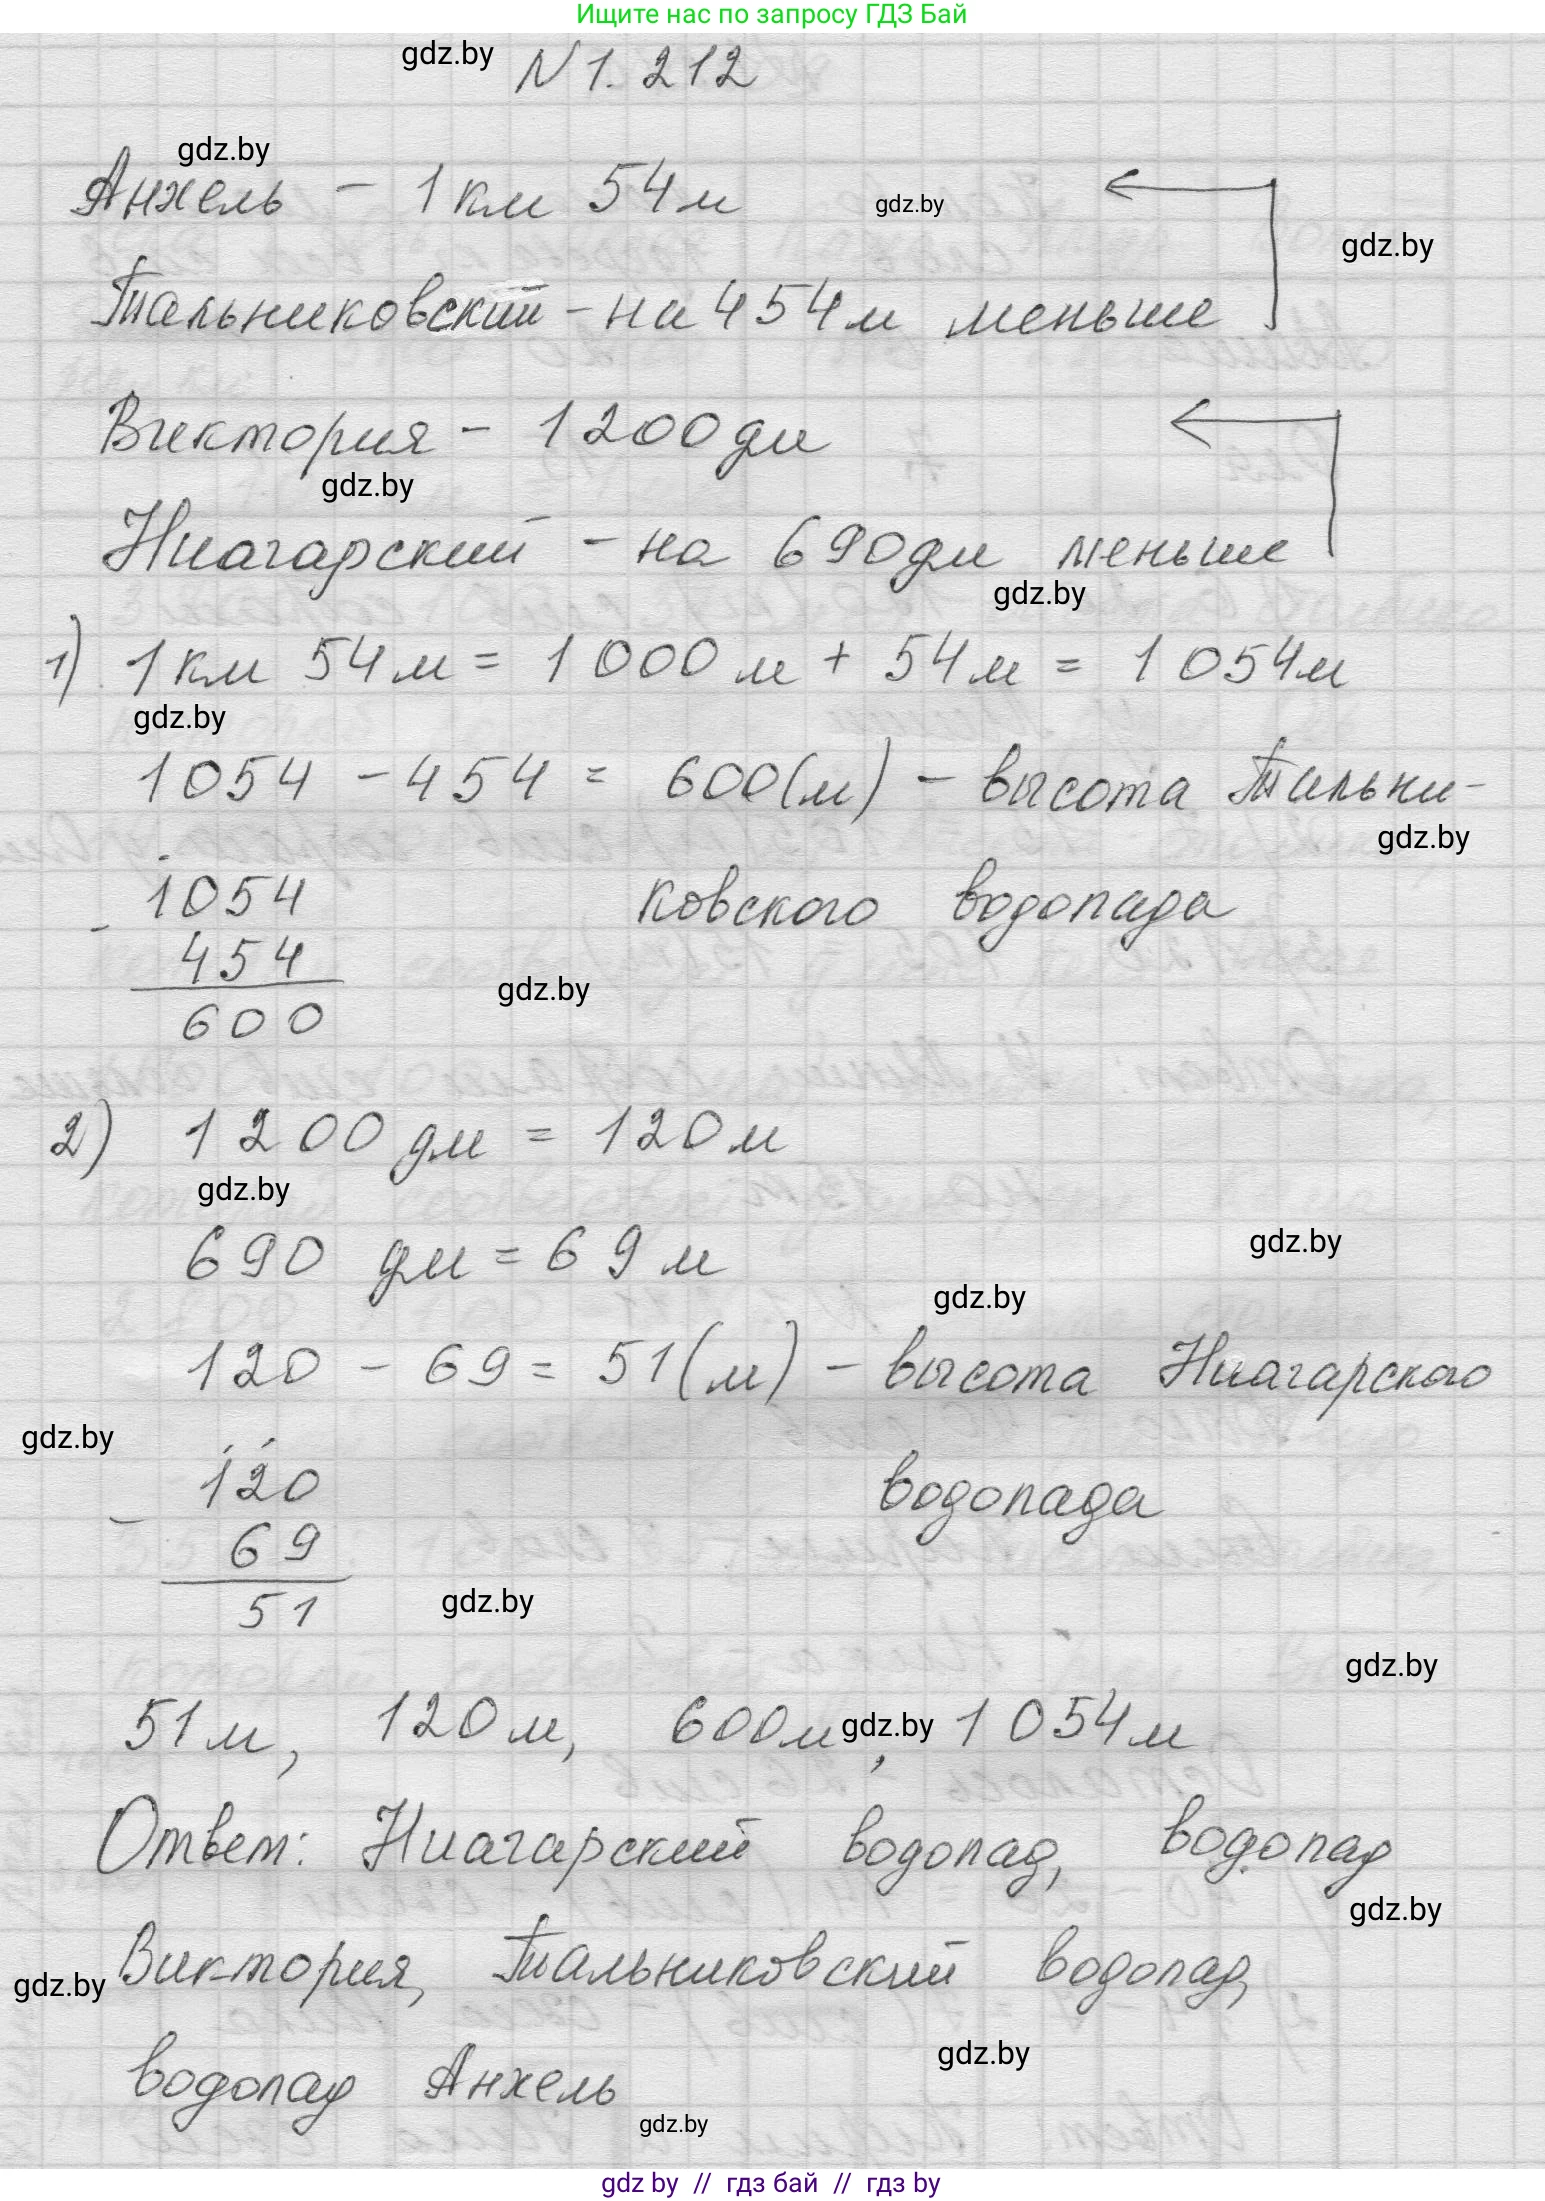 Ищите нас по запросу ГДЗ Бай
gdz.by
N 1.212
gdz.by
Анхель - 1 км 54 м
gdz.by
gdz.by
Тальниковский - на 454 м меньше
Виктория - 1200 дм
gdz.by
Ниагарский - на 690 дм меньше
gdz.by
1) 1 км 54 м = 1 000 м + 54 м = 1 054 м
gdz.by
1054 - 454 = 600 (м) - высота Тальни-
gdz.by
ковского водопада
1054
-
454
gdz.by
600
2) 1 200 дм = 120 м
gdz.by
690 дм = 69 м
gdz.by
gdz.by
120 - 69 = 51 (м) - высота Ниагарского
gdz.by
водопада
120
-
69
51
gdz.by
gdz.by
51 м, 120 м, 600 м, 1 054 м
gdz.by
Ответ: Ниагарский водопад, водопад
gdz.by
Виктория, Тальниковский водопад,
gdz.by
gdz.by
водопад Анхель
gdz.by
gdz by // гдз бай // гдз by